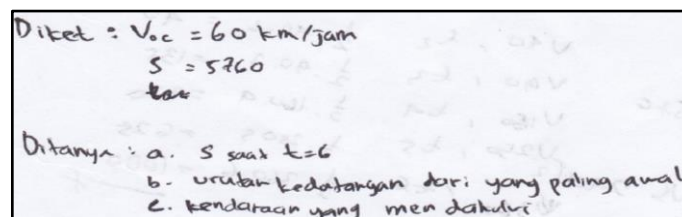 Diket : Voc = 60 km/jam
S = 5760
Ditanya : a. S saat t=6
b. urutan kedatangan dari yang paling awal
c. kendaraan yang mendahului